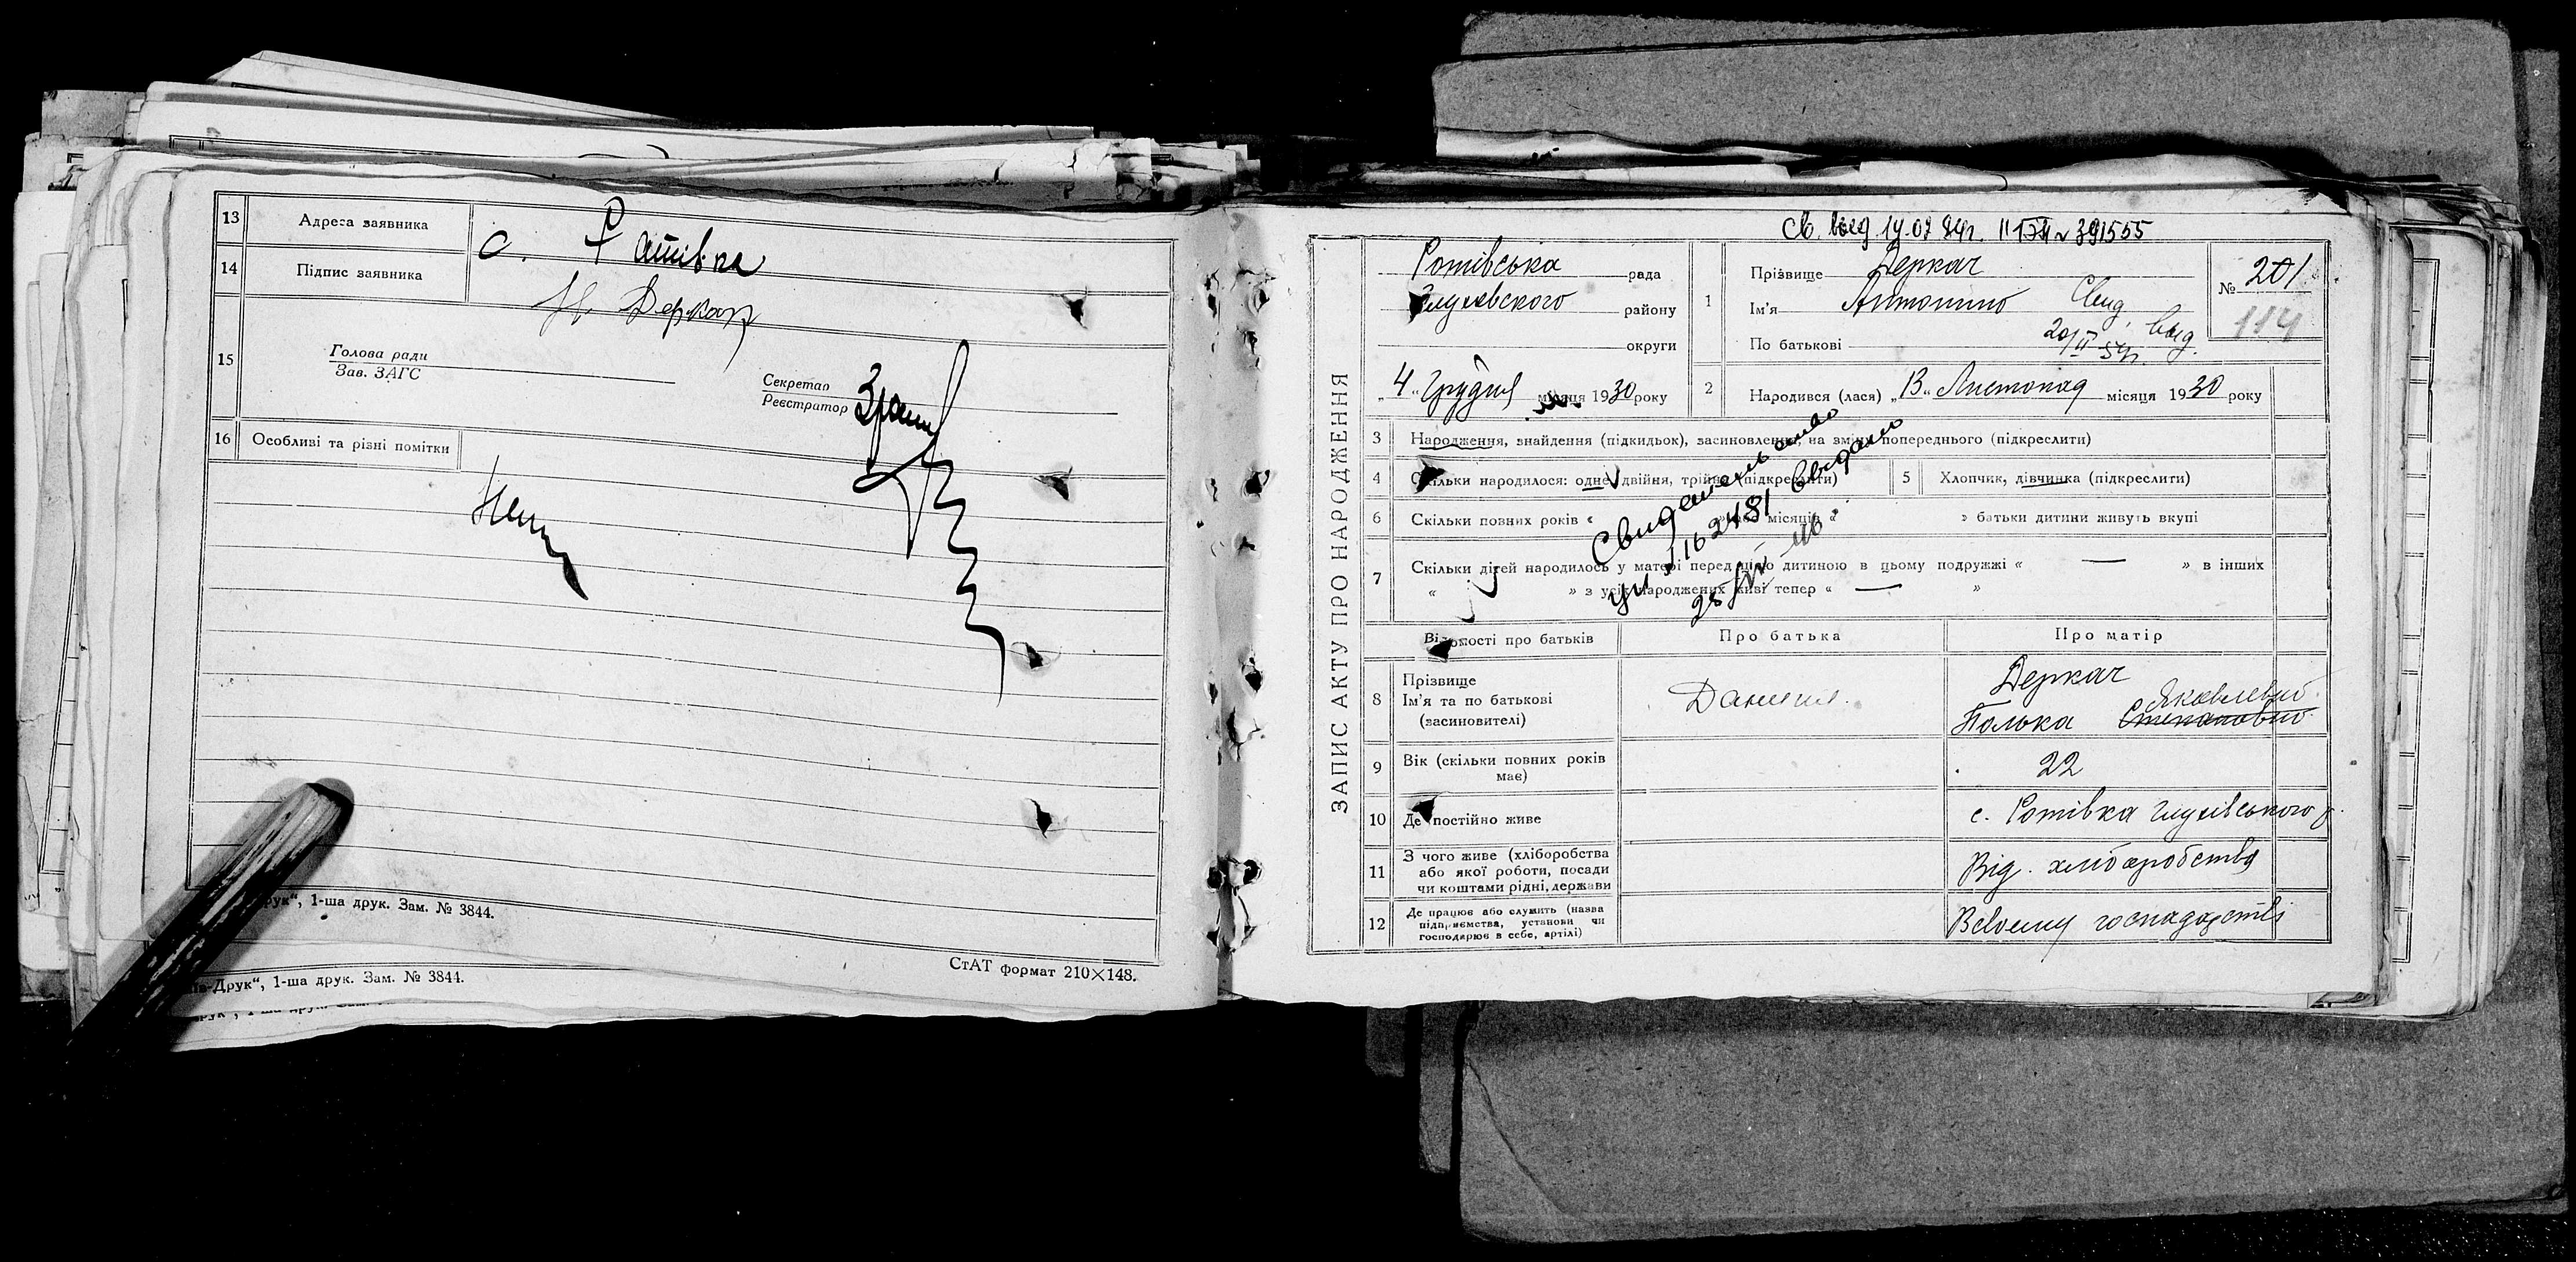 13 Адреса заявника с. Ротівка
14 Підпис заявника Деркач
15 Голова ради
Зав. ЗАГС
Секретар
Реєстратор
16 Особливі та різні помітки
Нема
рук", 1-ша друк. Зам. № 3844.
СтАТ формат 210×148.
-Друк", 1-ша друк. Зам. № 3844.
ЗАПИС АКТУ ПРО НАРОДЖЕННЯ
Св. выд 14.07 84г. 391555
Ротівська рада
Глухівского району
округи
„4" Грудня місяця 1930 року
1 Прізвище Деркач
Ім'я Антонина
По батькові
Свид. выд.
20/II 54г.
№ 201
114
2 Народився (лася) „13" Листопад місяця 1930 року
3 Народження, знайдення (підкидьок), засиновлення, на зміну попереднього (підкреслити)
4 Скільки народилося: одне, двійня, трійня (підкреслити)
5 Хлопчик, дівчинка (підкреслити)
6 Скільки повних років « » або місяців « » батьки дитини живуть вкупі
7 Скільки дітей народилось у матері перед цією дитиною в цьому подружжі « — » в інших
« » з усіх народжених живі тепер « — »
Свидетельство
162481 выдано
Відомості про батьків
Про батька
Про матір
8 Прізвище
Ім'я та по батькові
(засиновителі)
Даниил.
Деркач
Яковлевна
Полька Степановна
9 Вік (скільки повних років
має)
22
10 Де постійно живе
с. Ротівка Глухівського р.
11 З чого живе (хліборобства
або якої роботи, посади
чи коштами рідні, держави
Від. хліборобства
12 Де працює або служить (назва
підприємства, установи чи
господарює в себе, артілі)
В своему господарстві